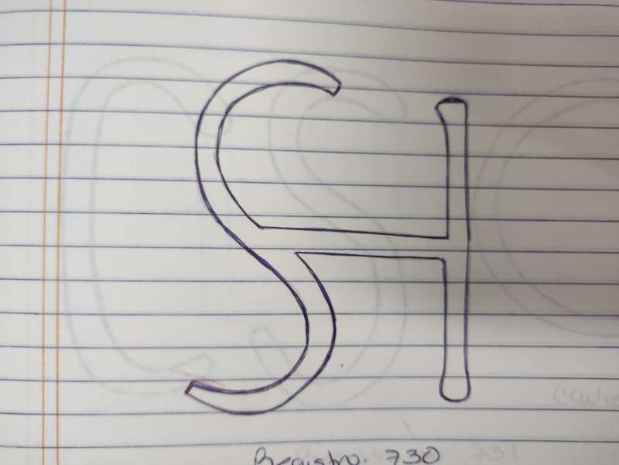 SH
Registro. 730